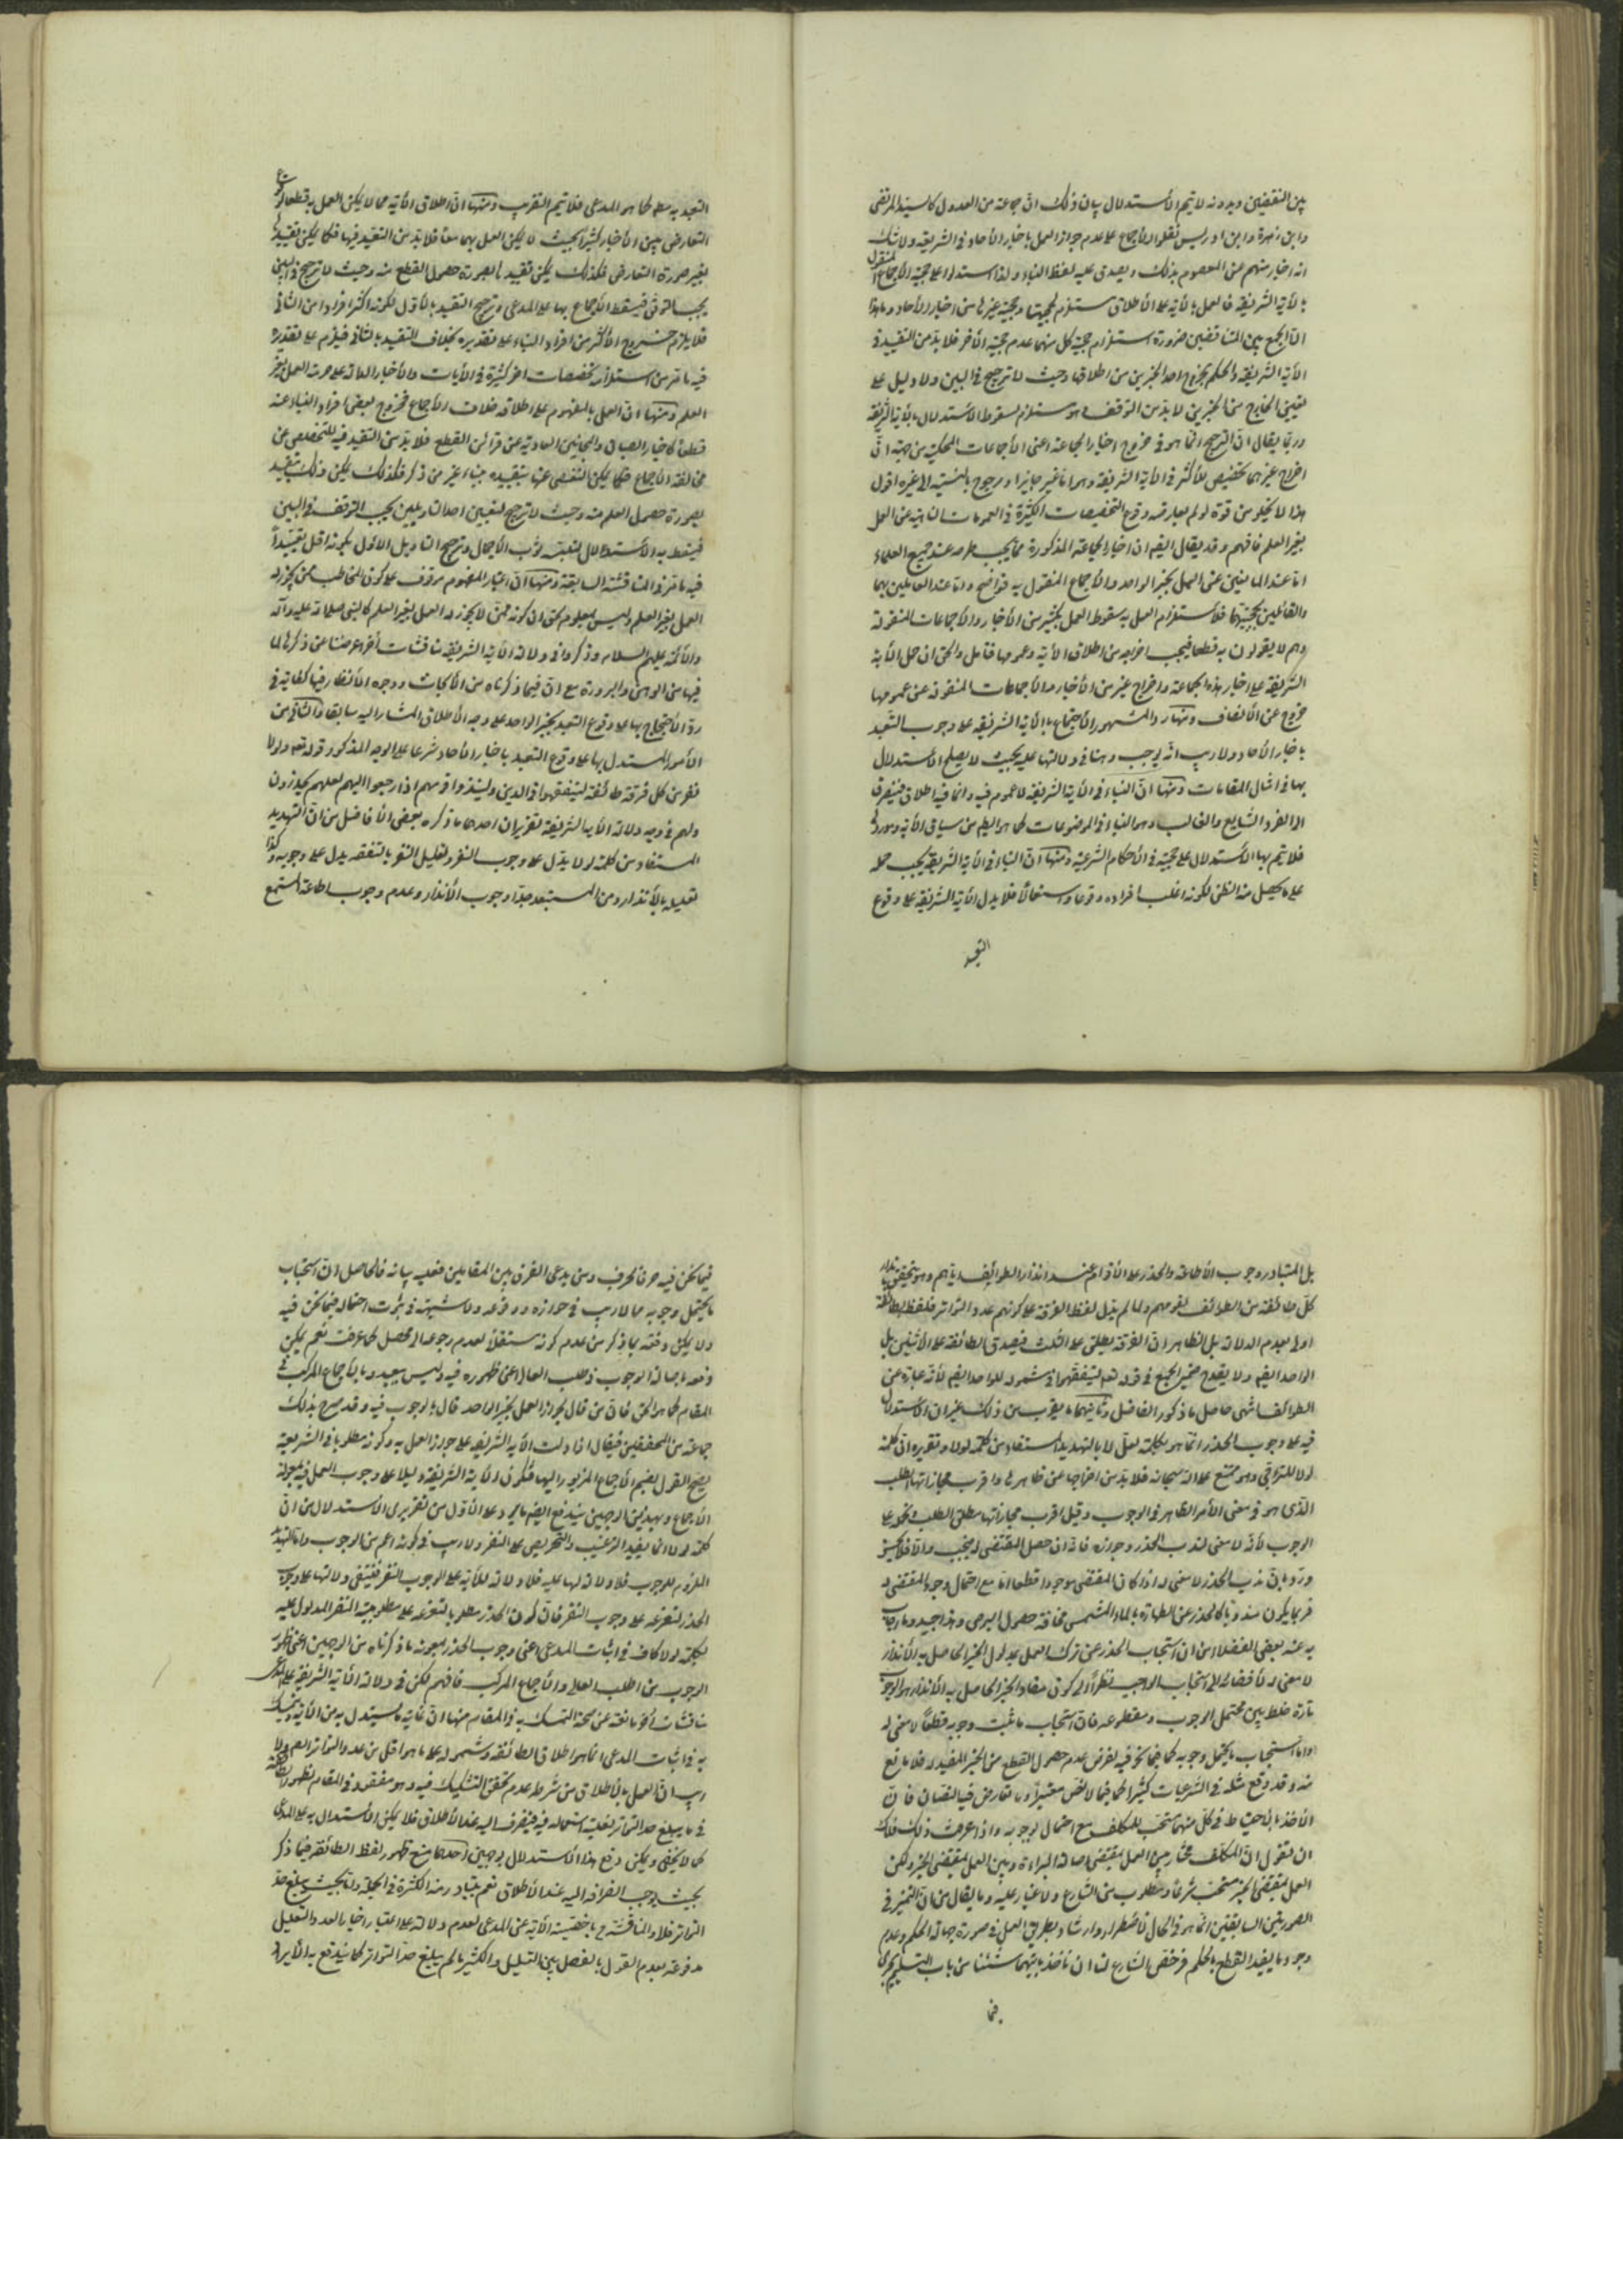 بين النقيضين وبدونه لا يتم الأستدلال بيان ذلك ان جماعة من العدول كالسيد المرتضى
وابن زهرة وابن ادريس نقلوا الأجماع على عدم جواز العمل باخبار الأحاد في الشريقه ولا شك
انه اخبار منهم عن المعصوم بذلك ويصدق عليه لفظ النباء ولذا استدلوا على حجية الأجماع المنقول
بالأية الشريفة فالعمل بالأية على الأطلاق مستلزم لحجيتها وحجية غيرها من اخبار الأحاد وما هذا
الا الجمع بين المتناقضين ضرورة استلزام حجية كل منهما عدم حجية الأخر فلا بد من التقييد في
الأية الشريفة والحكم بخروج احد الخبرين من اطلاقها وحيث لا ترجيح في البين ولا دليل على
تعيين الخارج من الخبرين لا بد من التوقف وهو مستلزم لسقوط الأستدلال بالأية الشريفة
وربما يقال ان الترجيح انما هو في خروج اخبار الجماعة اعنى الأجماعات المحكية من جهة ان
اخراج غيرهما تخصيص للأكثر في الأية الشريفة وهو اما غير جايز او مرجوح بالنسبة الى غيره اقول
هذا لا يخلو من قوة لو لم يعارضه وقوع التخصيصات الكثيرة في العمومات الناهية من العمل
بغير العلم فافهم وقد يقال ايضا ان اخبار الجماعة المذكورة مما يجب طرحه عند جميع العلماء
اما عند المانعين عن العمل بخبر الواحد والأجماع المنقول به فواضح واما عند العاملين بهما
والقائلين بحجيتهما فلأستلزام العمل به سقوط العمل بكثير من الأخبار والأجماعات المنقولة
وهم لا يقولون به قطعا فيجب اخراجه من اطلاق الأية وعمومها فتأمل والحق ان حمل الأية
الشريفة على اخبار هذه الجماعة واخراج غيره من الأخبار والأجماعات المنقولة عن عمومها
خروج عن الأنصاف ومنها والمشهور الأحتجاج بالأية الشريفة على وجوب التعبد
باخبار الأحاد ولا ريب انه يوجب وهنا في دلالتها عليه بحيث لا يصلح الأستدلال
بها في امثال المقامات ومنها ان النباء في الأية الشريفة لا عموم فيه وانما فيه اطلاق فينصرف
الى الفرد الشايع والغالب وهو النباء في الموضوعات كما هو الظاهر من سياق الأية وموردها
فلا يتم بها الأستدلال على حجيته في الأحكام الشرعية ومنها ان النباء في الأية الشريفة يجب حمله
على ما يحصل منه الظن لكونه اغلب افراده وقوعا واستعمالا فلا يدل الأية الشريفة على وقوع
التعبد
التعبد به مطلقا كما هو المدعى فلا يتم التقريب ومنها ان اطلاق الأية مما لا يمكن العمل به قطعا لوقوع
التعارض بين الأخبار كثيرا بحيث لا يمكن العمل بهما معا فلا بد من التقييد فيها فكما يمكن تقييدها
بغير صورة التعارض فكذلك يمكن تقييدها بصورة حصول القطع منه وحيث لا ترجيح في البين
يجب التوقف فيسقط الأحتجاج بها على المدعى وترجيح التقييد بالأول لكونه اكثر افرادا من الثاني
فلا يلزم خروج الأكثر من افراد النباء على تقديره بخلاف التقييد بالثاني فيلزم على تقديره
فيه ما مر من استلزامه تخصيصات اخر كثيرة في الأيات والأخبار الدالة على حرمة العمل بغير
العلم ومنها ان العمل بالمفهوم على اطلاقه خلاف الأجماع لخروج بعض افراد النباء عنه
قطعا كاخبار الصبيان والمجانين العارية عن قرائن القطع فلا بد من التقييد فيه للتخلص عن
مخالفة الأجماع فكما يمكن التفصى عنها بتقييده بنباء غير من ذكر فكذلك يمكن ذلك بتقييده
بصورة حصول العلم منه وحيث لا ترجيح لتعيين احد التاويلين يجب التوقف في البين
فيسقط به الأستدلال لتعقبه ثوب الأجمال وترجيح التاويل الاول بكونه اقل تقييدا
فيه ما مر في المناقشة السابقة ومنها ان اعتبار المفهوم موقوف على كون المخاطب ممن يجوز له
العمل بغير العلم وليس بمعلوم لحق ان كونه ممن لا يجوز له العمل بغير العلم كالنبى صلى الله عليه وآله
والأئمة عليهم السلام وذكروا في دلالة الأية الشريفة مناقشات أخر اعرضنا عن ذكرها لما
فيها من الوهن والبرودة مع ان فيما ذكرناه من الأبحاث ووجوه الأنظار فيها كفاية في
رد الأحتجاج بها على وقوع التعبد بخبر الواحد على وجه الأطلاق المشار اليه سابقا والثاني من
الأمور المستدل بها على وقوع التعبد باخبار الأحاد شرعا على الوجه المذكور قوله تعالى ولولا
نفر من كل فرقة طائفة ليتفقهوا في الدين ولينذروا قومهم اذا رجعوا اليهم لعلهم يحذرون
ولهم في وجه دلالة الأية الشريفة تقريران احدهما ما ذكره بعض الأفاضل من ان التهديد
المستفاد من كلمة لولا يدل على وجوب النفر وتعليل النفر بالتفقه يدل على وجوبه وكذا
تعليله بالأنذار ومن المستبعد جدا وجوب الأنذار وعدم وجوب اطاعة المستمع
بل المتبادر وجوب الأطاعة والحذر على الأقوام عند انذار الطوائف اياهم وهو يتحقق بانذار
كل طائفة من الطوائف لقومهم ولما لم يدل لفظ الفرقة على كونهم عدد التواتر فلفظ الطائفة
اولى بعدم الدلالة بل الظاهر ان الفرقة يطلق على الثلث فيصدق الطائفة على الأثنين بل
الواحد ايضا ولا يقدح ضمير الجمع في قوله تعالى ليتفقهوا في شموله للواحد ايضا لأنه عبارة عن
الطوائف انتهى حاصل ما ذكره الفاضل وثانيهما ما يقرب من ذلك غير ان الاستدلال
فيه على وجوب الحذر انما هو بكلمة لعل لا بالتهديد المستفاد من كلمة لولا وتقريره ان كلمة
لعل للترجى وهو ممتنع على الله سبحانه فلا بد من اخراجها عن ظاهرها واقرب مجازاتها الطلب
الذى هو في معنى الأمر الظاهر في الوجوب وقيل اقرب مجازاتها مطلق الطلب ونحوه على
الوجوب لأنه لا معنى لندب الحذر وجوازه فانه ان حصل المقتضى له يجب والا فلا يحسن
ورد بان ندب الحذر لا معنى له اذا كان المقتضى موجودا قطعا اما مع احتمال وجود المقتضى له
فربما يكون مندوبا كالحذر عن الطهارة بالماء المشمس مخافة حصول البرص وهذا جيد وما اجاب
به عنه بعض الفضلاء من ان استحباب الحذر عن ترك العمل بمدلول الخبر الحاصل به الأنذار
لا معنى له لأفضائه الى استحباب الواجب نظرا الى كون مفاد الخبر الحاصل به الأنذار هو الوجوب
تارة خلط بين محتمل الوجوب ومقطوعه فان استحباب ما ثبت وجوبه قطعا لا معنى له
واما استحباب ما يحتمل وجوبه كما فيما نحن فيه لفرض عدم حصول القطع من الخبر المفيد له فلا مانع
منه وقد وقع مثله في الشرعيات كثيرا كما فيما لا نص معتبرا وما تعارض فيه النصان فان
الأخذ بالأحتياط في كل منهما مستحب للمكلف مع احتمال لوجوبه واذا عرفت ذلك فلك
ان تقول ان المكلف مختار بين العمل بمقتضى اصالة البراءة وبين العمل بمقتضى الخبر ولكن
العمل بمقتضى الخبر مستحب شرعا ومطلوب من الشارع ولا غبار عليه وما يقال من ان التخيير في
الصورتين السابقتين انما هو في الحال الأضطرار وارشاد بطريق العمل في صورة جهالة الحكم وعدم
وجود ما يفيد القطع بالحكم فرخص الشارع لنا ان نأخذ بايهما شئنا من باب التسليم يجرى
فيما
فيما نحن فيه حرفا بحرف ومن يدعى الفرق بين المقامين فعليه بيانه فالحاصل ان استحباب
ما يحتمل وجوبه مما لا ريب في جوازه ووقوعه ولا شبهة في ثبوت احتماله فيما نحن فيه
ولا يمكن دفعه بما ذكر من عدم كونه مستقلا لعدم رجوعه الى محصل كما عرفت نعم يمكن
دفعه باصالة الوجوب في طلب العالى اعنى ظهوره فيه وليس ببعيد وبالأجماع المركب في
المقام كما هو الحق فان من قال بجواز العمل بخبر الواحد قال بالوجوب فيه وقد صرح بذلك
جماعة من المحققين فيقال اذا دلت الأية الشريفة على جواز العمل به وكونه مطلوبا في الشريعة
يصح القول بضم الأجماع المزبور اليها فتكون الأية الشريفة دليلا على وجوب العمل فيه بمعونة
الأجماع وبهذين الوجهين يندفع ايضا ما يرد على الأول من تقريرى الأستدلال من ان
كلمة لولا انما يفيد الترغيب والتحريص على النفر ولا ريب في كونه اعم من الوجوب واما التهديد
الملزوم للوجوب فلا دلالة لها عليه فلا دلالة للأية على الوجوب النفر فينتفى دلالتها على وجوب
الحذر لتفرعه على وجوب النفر فان كون الحذر مطلوبا بتفرعه على مطلوبية النفر المدلول عليه
بكلمة لولا كاف في اثبات المدعى اعنى وجوب الحذر بمعونة ما ذكرناه من الوجهين اعنى ظهور
الوجوب من الطلب العالى والأجماع المركب فافهم لكن في دلالة الأية الشريفة على المدعى
مناقشات أخر مانعة عن صحة التمسك به في المقام منها ان غاية ما يستدل به من الأية ويتمسك
به في اثبات المدعى انما هو اطلاق الطائفة وشموله على ما هو اقل من عدد التواتر ايضا ولا
ريب ان العمل بالأطلاق من شروط عدم تحقق التشكيك فيه وهو مفقود في المقام لظهور الطائفة
في ما يبلغ حد التواتر لغلبة استعماله فيه فينصرف اليه عند الأطلاق فلا يمكن الأستدلال به على المدعى
كما لا يخفى ويمكن دفع هذا الأستدلال بوجهين احدهما منع ظهور لفظ الطائفة فيما ذكر
بحيث يوجب انصرافه اليه عند الأطلاق نعم يتبادر منه الكثرة في الجملة واما بحيث يبلغ حد
التواتر فلا والمناقشة ح باخصية الأية عن المدعى لعدم دلالته على اعتبار اخبار العدد القليل
مدفوعة بعدم القول بالفصل بين القليل والكثير ما لم يبلغ حد التواتر كما يندفع به الأيراد